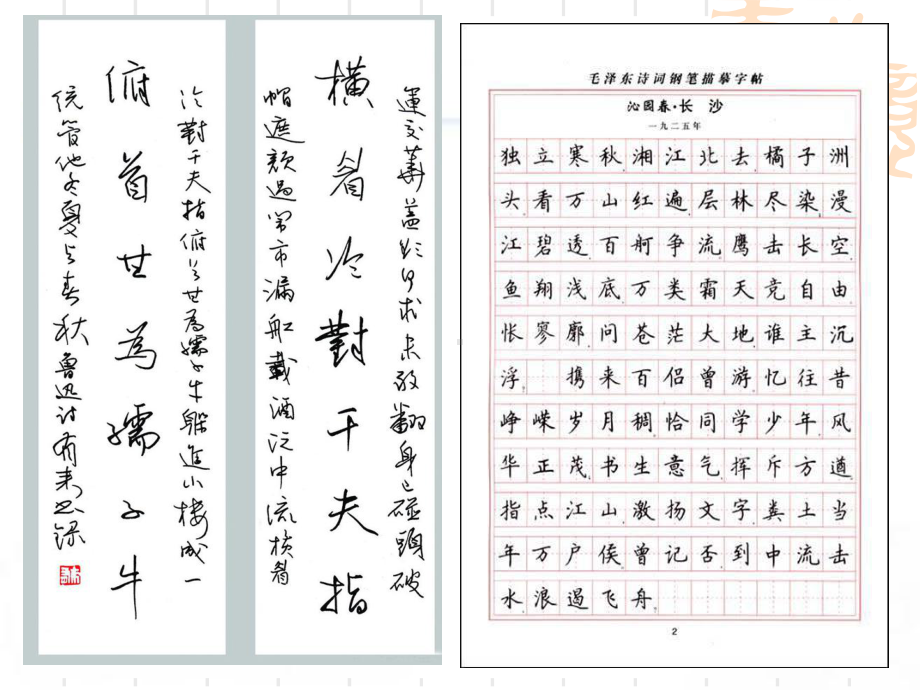 運交華蓋欲何求未敢翻身已碰頭破
橫眉冷對千夫指
帽遮顏過鬧市漏船載酒泛中流橫眉
冷對千夫指俯首甘為孺子牛躲進小樓成一
俯首甘為孺子牛
統管他冬夏与春秋 魯迅詩
毛泽东诗词钢笔描摹字帖
沁园春·长沙
一九二五年
独立寒秋湘江北去橘子洲
头看万山红遍层林尽染漫
江碧透百舸争流鹰击长空
鱼翔浅底万类霜天竞自由
怅寥廓问苍茫大地谁主沉
浮 携来百侣曾游忆往昔
峥嵘岁月稠恰同学少年风
华正茂书生意气挥斥方遒
指点江山激扬文字粪土当
年万户侯曾记否到中流击
水浪遏飞舟
2